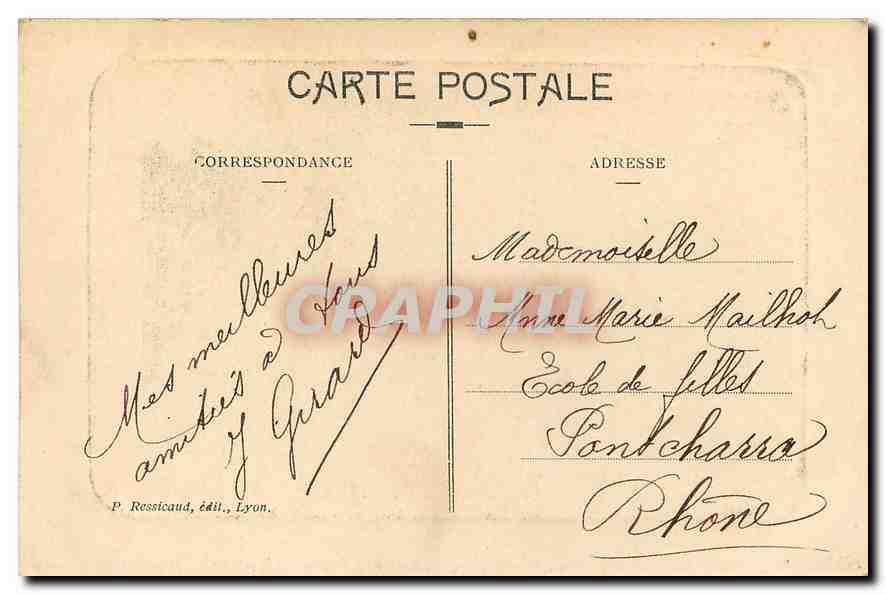 CARTE POSTALE
CORRESPONDANCE
Mes meilleures
amitiés à tous
J Girard
P. Ressicaud, édit., Lyon.
ADRESSE
Mademoiselle
Anne Marie Mailhol
Ecole de filles
Pontcharra
Rhône
CPAPHIL